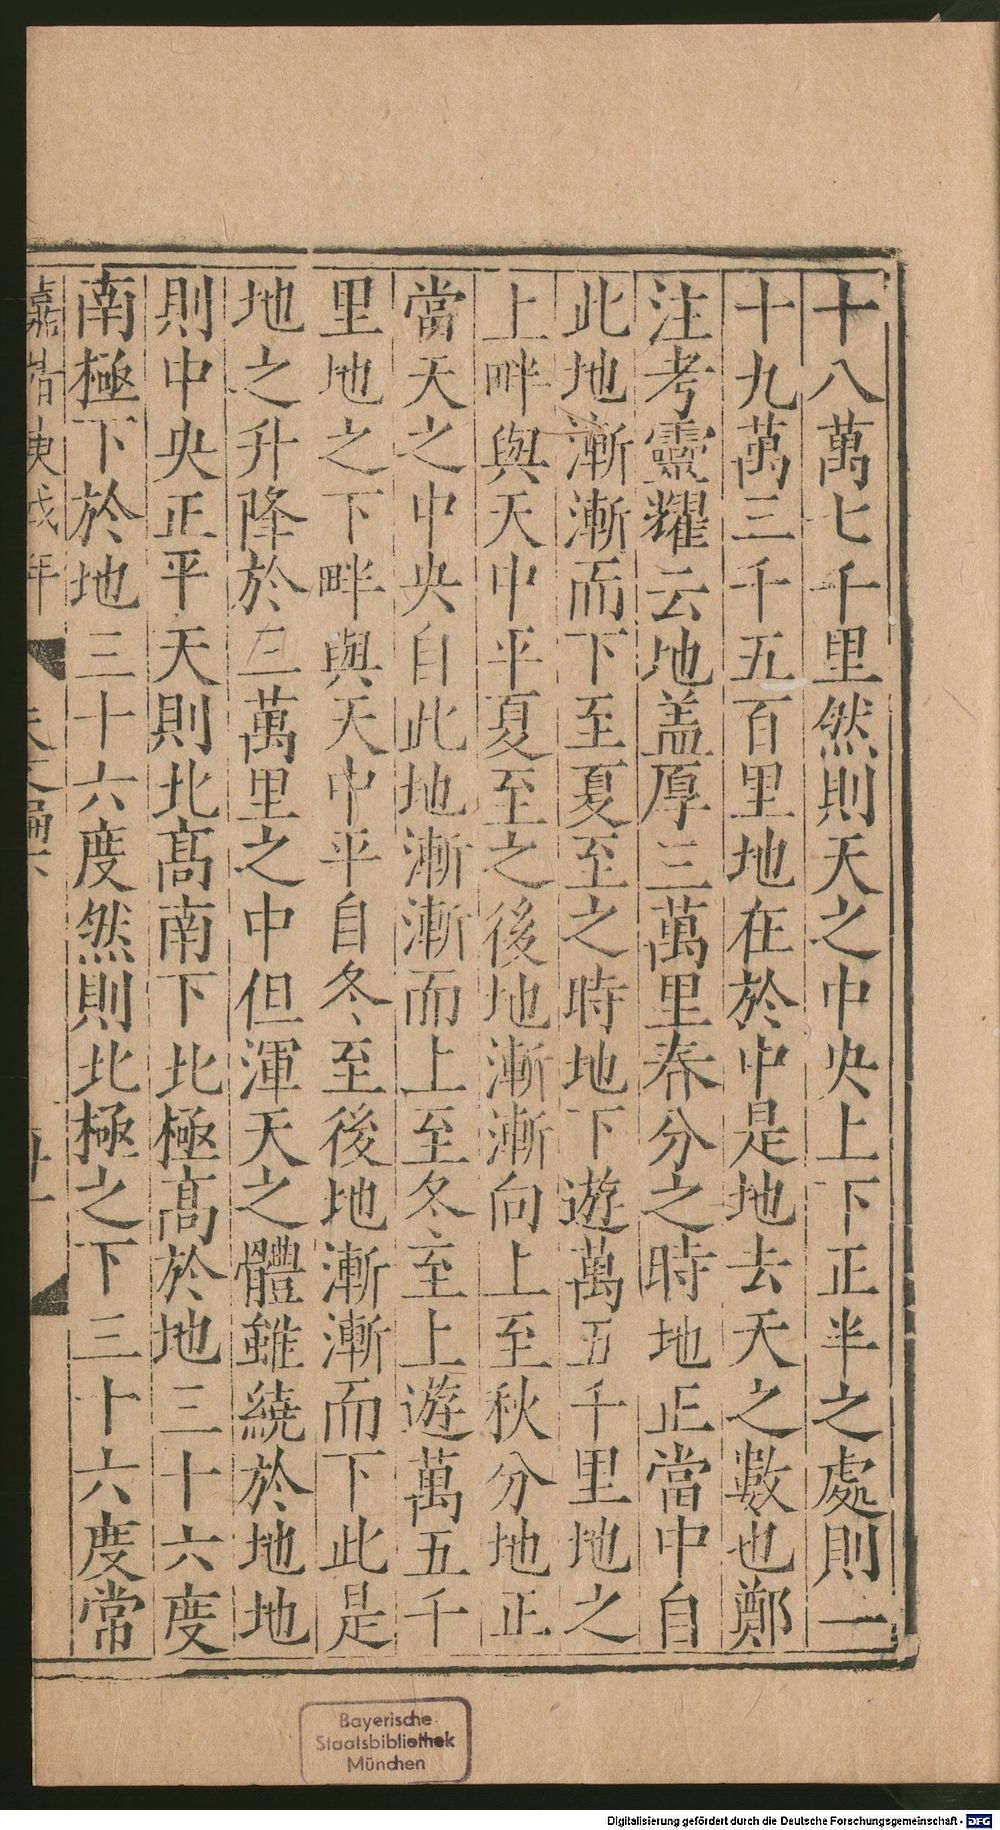 十八萬七千里然則天之中央上下正半之處則一
十九萬三千五百里地在於中是地去天之數也鄭
注考靈耀云地盖厚三萬里春分之時地正當中自
此地漸漸而下至夏至之時地下遊萬五千里地之
上畔與天中平夏至之後地漸漸向上至秋分地正
當天之中央自此地漸漸而上至冬至上遊萬五千
里地之下畔與天中平自冬至後地漸漸而下此是
地之升降於三萬里之中但渾天之體雖繞於地地
則中央正平天則北髙南下北極髙於地三十六度
南極下於地三十六度然則北極之下三十六度常
嘉靖庚戌年
Bayerische
Staatsbibliothek
München
Digitalisierung gefördert durch die Deutsche Forschungsgemeinschaft - DFG